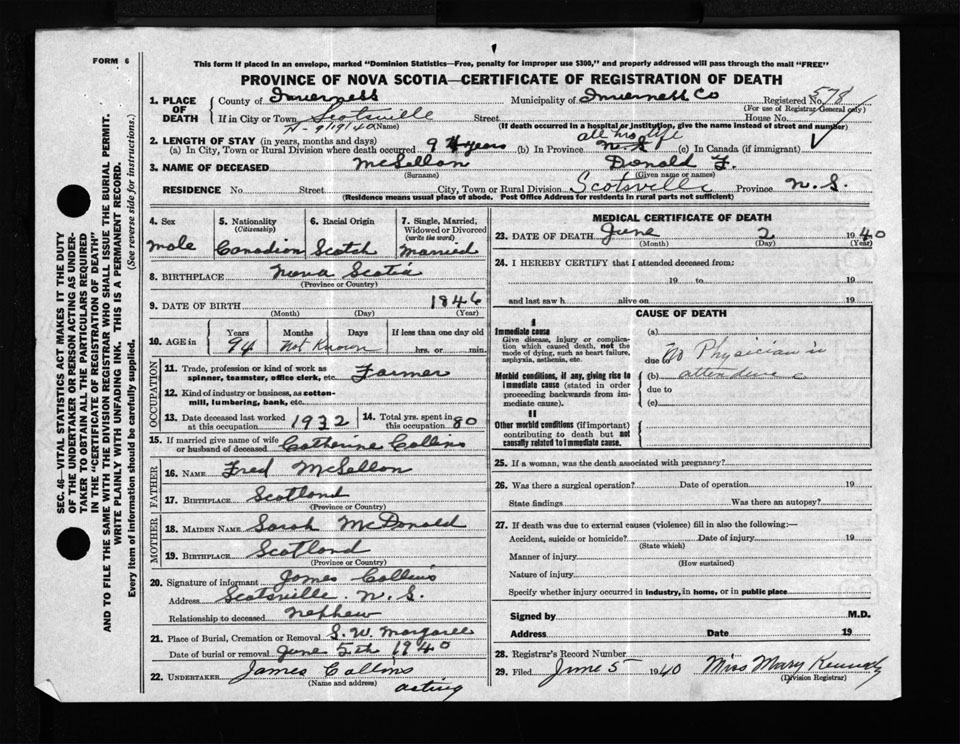 FORM 6
This form if placed in an envelope, marked "Dominion Statistics—Free, penalty for improper use $300," and properly addressed will pass through the mail "FREE"
PROVINCE OF NOVA SCOTIA—CERTIFICATE OF REGISTRATION OF DEATH
1. PLACE OF DEATH County of Inverness Municipality of Inverness Co Registered No. 578
(For use of Registrar-General only)
If in City or Town Scotsville Street House No.
(Name) (If death occurred in a hospital or institution, give the name instead of street and number)
2. LENGTH OF STAY (in years, months and days) all his life
(a) In City, Town or Rural Division where death occurred 94 years (b) In Province N.S (c) In Canada (if immigrant)
3. NAME OF DECEASED McLellan Donald F.
(Surname) (Given name or names)
RESIDENCE No. Street City, Town or Rural Division Scotsville Province N.S.
(Residence means usual place of abode. Post Office Address for residents in rural parts not sufficient)
4. Sex male
5. Nationality (Citizenship) Canadian
6. Racial Origin Scotch
7. Single, Married, Widowed or Divorced (write the word) Married
8. BIRTHPLACE Nova Scotia
(Province or Country)
9. DATE OF BIRTH 1846
(Month) (Day) (Year)
10. AGE in Years 94 Months Not Known Days If less than one day old hrs. or min.
OCCUPATION
11. Trade, profession or kind of work as spinner, teamster, office clerk, etc. Farmer
12. Kind of industry or business, as cotton-mill, lumbering, bank, etc.
13. Date deceased last worked at this occupation 1932
14. Total yrs. spent in this occupation 80
15. If married give name of wife or husband of deceased Catherine Collins
FATHER
16. NAME Fred McLellan
17. BIRTHPLACE Scotland
(Province or Country)
MOTHER
18. MAIDEN NAME Sarah McDonald
19. BIRTHPLACE Scotland
(Province or Country)
20. Signature of informant James Collins
Address Scotsville. N.S.
Relationship to deceased nephew
21. Place of Burial, Cremation or Removal S. W. Margaree
Date of burial or removal June 5th 1940
22. UNDERTAKER James Collins
(Name and address) acting
MEDICAL CERTIFICATE OF DEATH
23. DATE OF DEATH June 2 1940
(Month) (Day) (Year)
24. I HEREBY CERTIFY that I attended deceased from:
19 to 19
and last saw h alive on 19
CAUSE OF DEATH
I
Immediate cause
Give disease, injury or complication which caused death, not the mode of dying, such as heart failure, asphyxia, asthenia, etc.
(a)
due to No Physician in
Morbid conditions, if any, giving rise to immediate cause (stated in order proceeding backwards from immediate cause).
(b) attendance
due to
(c)
II
Other morbid conditions (if important) contributing to death but not causally related to immediate cause.
25. If a woman, was the death associated with pregnancy?
26. Was there a surgical operation? Date of operation 19
State findings Was there an autopsy?
27. If death was due to external causes (violence) fill in also the following:—
Accident, suicide or homicide? Date of injury 19
(State which)
Manner of injury
(How sustained)
Nature of injury
Specify whether injury occurred in industry, in home, or in public place
Signed by M.D.
Address Date 19
28. Registrar's Record Number
29. Filed June 5 1940 Miss Mary Kennedy
(Division Registrar)
SEC. 46—VITAL STATISTICS ACT MAKES IT THE DUTY
OF THE UNDERTAKER OR PERSON ACTING AS UNDER-
TAKER TO OBTAIN ALL THE PARTICULARS REQUIRED
IN THE "CERTIFICATE OF REGISTRATION OF DEATH"
AND TO FILE THE SAME WITH THE DIVISION REGISTRAR WHO SHALL ISSUE THE BURIAL PERMIT.
WRITE PLAINLY WITH UNFADING INK. THIS IS A PERMANENT RECORD.
Every item of information should be carefully supplied. (See reverse side for instructions.)